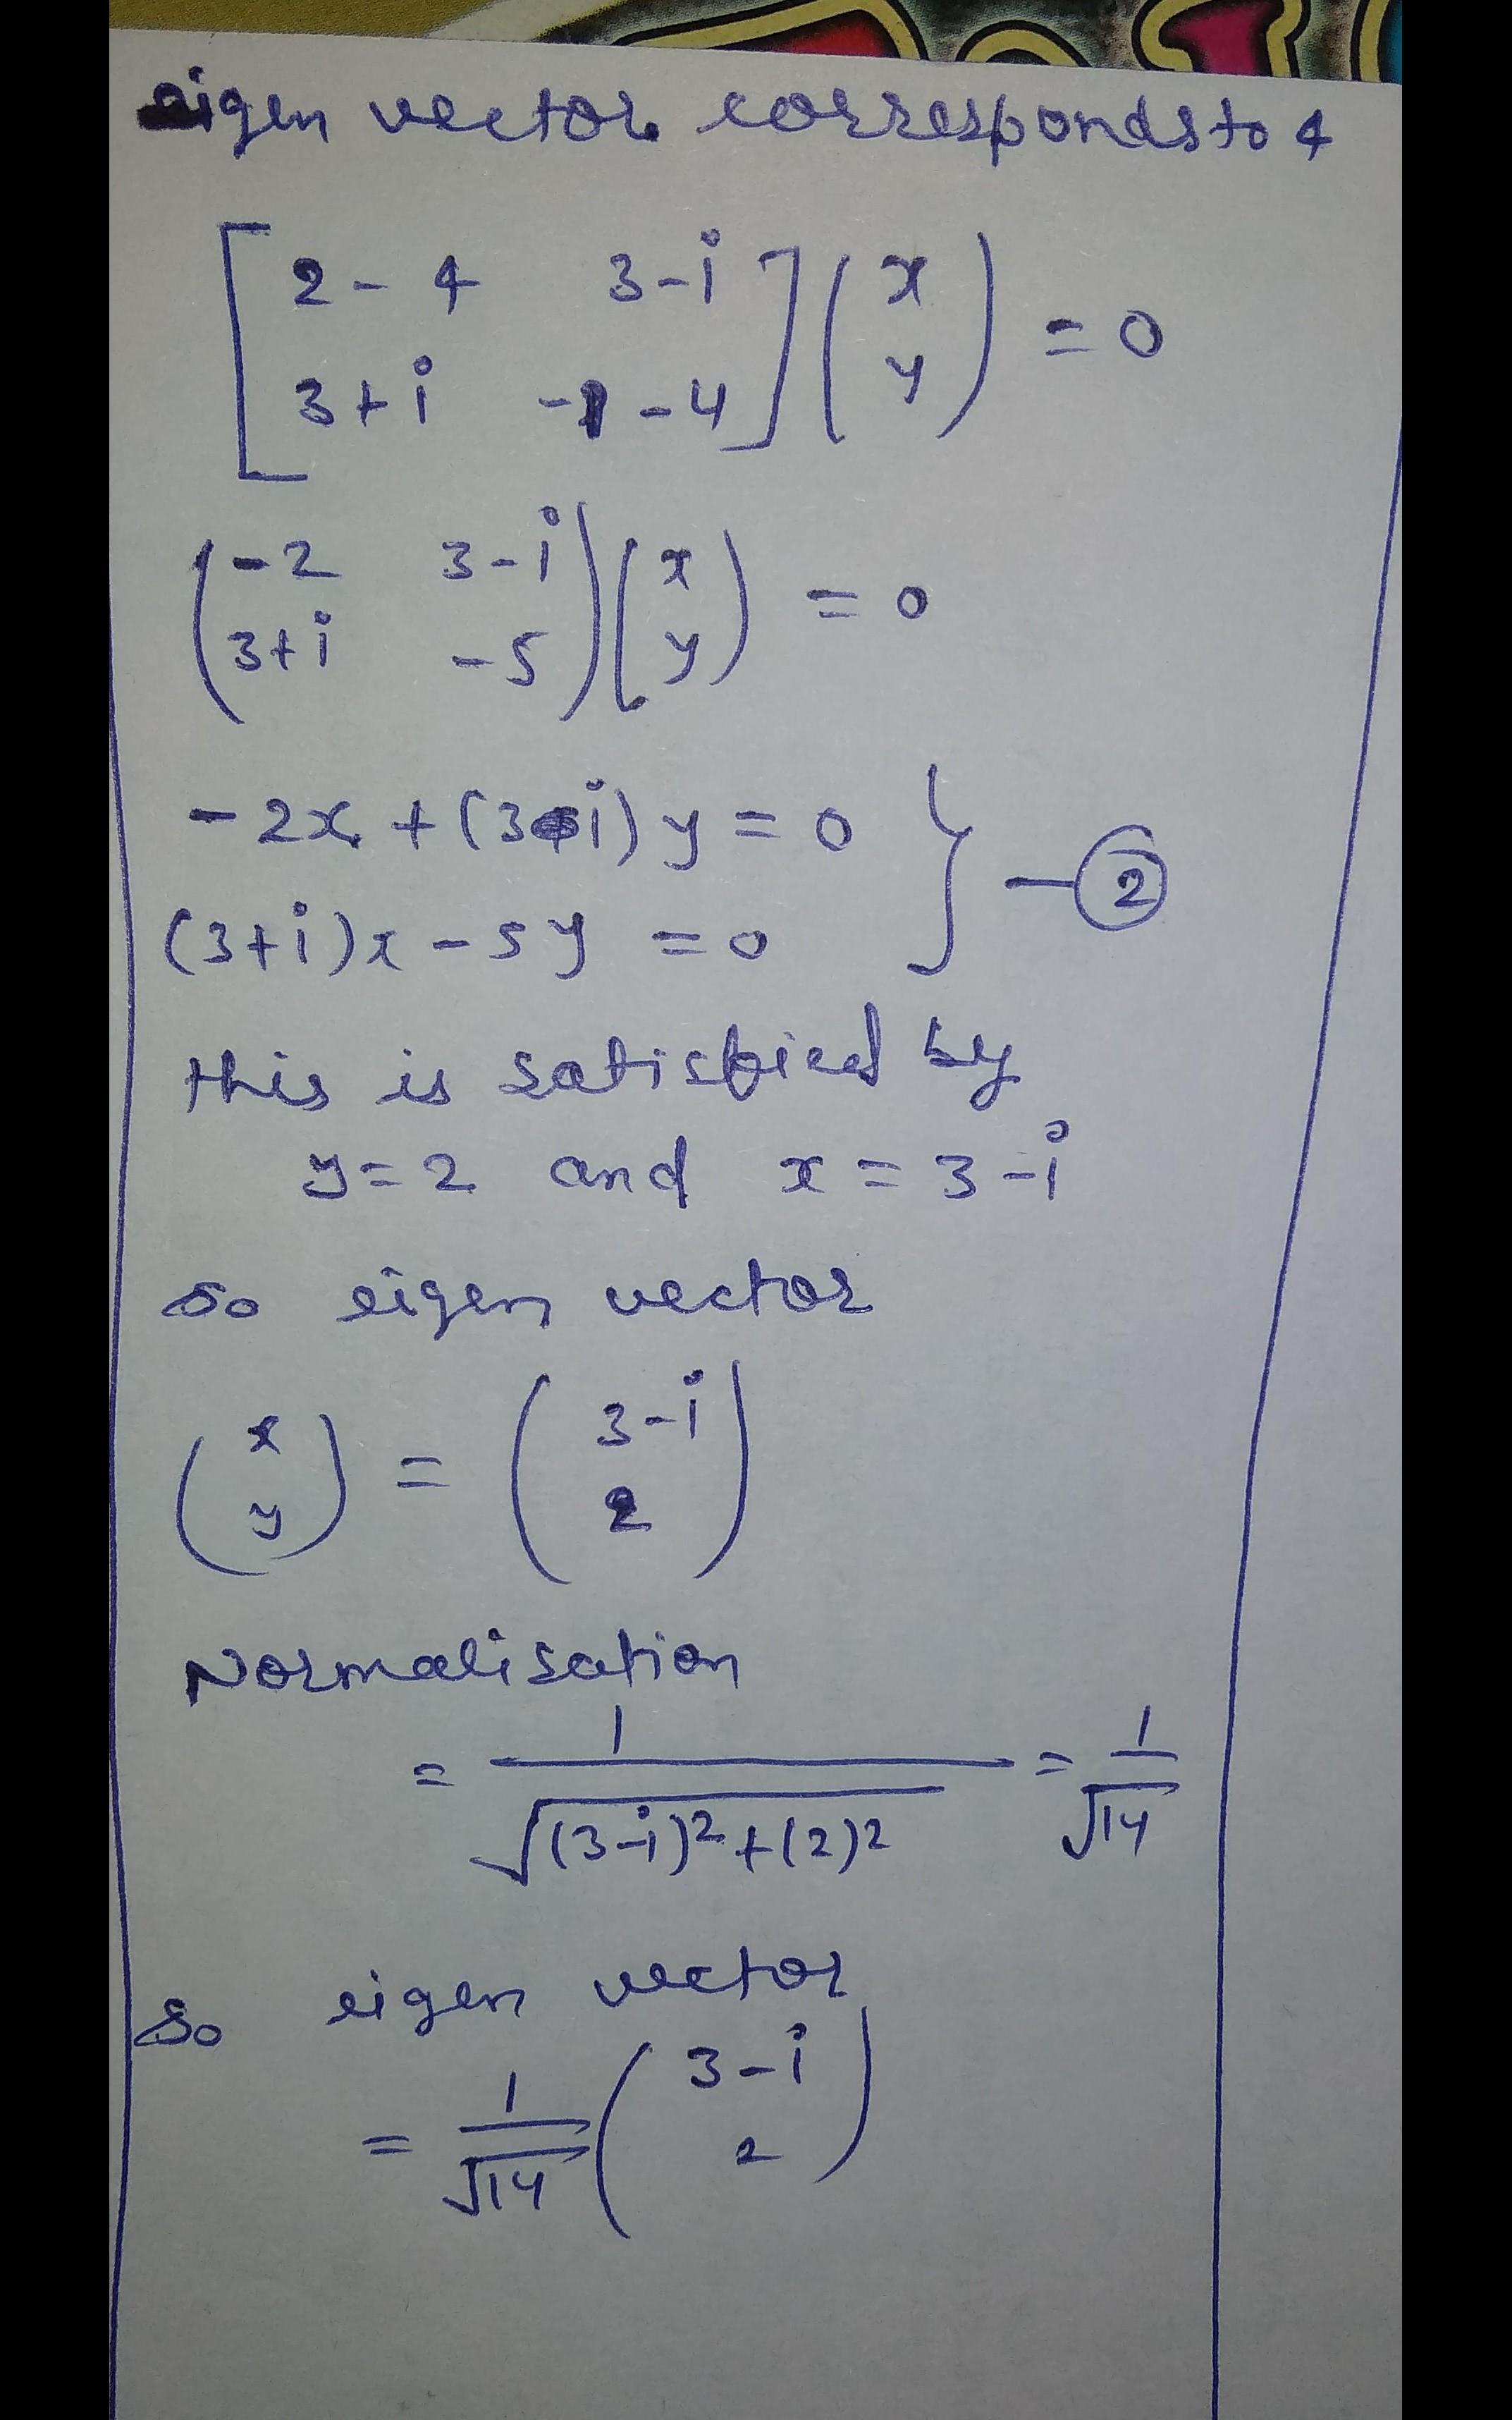 eigen vector corresponds to 4
[ 2 - 4   3 - i
3 + i   -1 - 4 ] ( x
y ) = 0
( -2   3 - i
3 + i   -5 ) ( x
y ) = 0
- 2x + (3-i) y = 0
(3+i)x - 5y = 0 } - ②
this is satisfied by
y = 2 and x = 3 - i
so eigen vector
( x
y ) = ( 3 - i
2 )
Normalisation
= 1 / √((3-i)2 + (2)2) = 1 / √14
So eigen vector
= 1 / √14 ( 3 - i
2 )